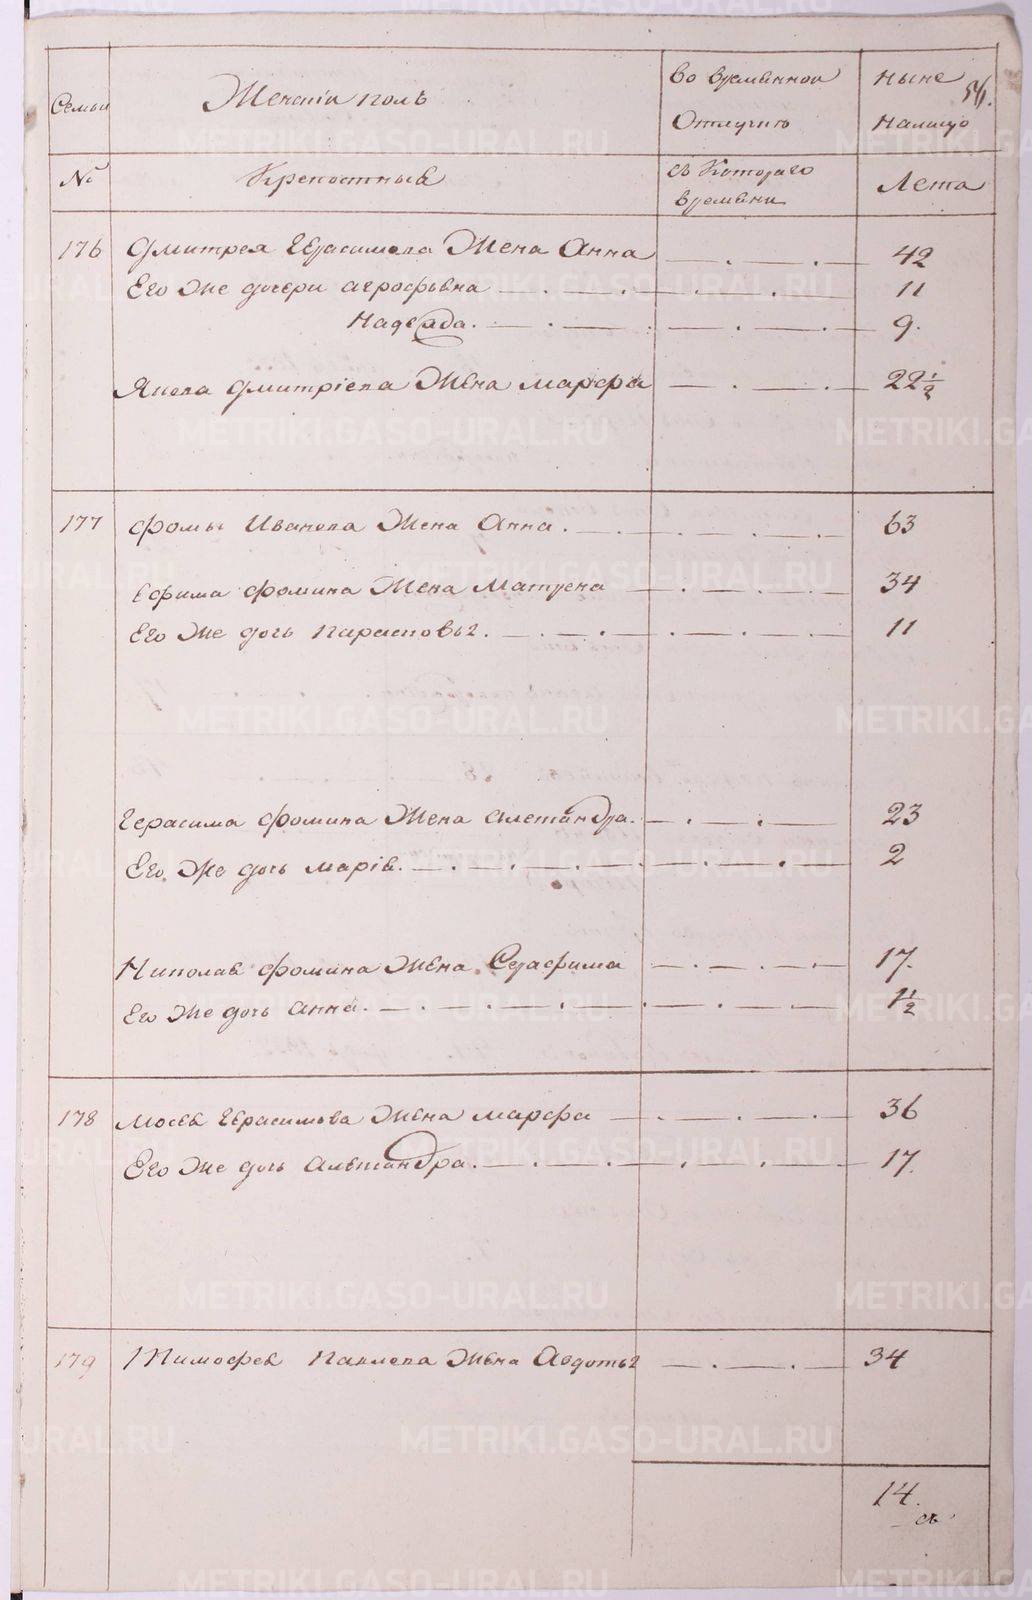 Семьи
Женскiй полъ
во временной
Отлучкѣ
ныне
На лицо
54.
№
Крепостныя
съ Котораго
времѣни
Лета
176 Дмитрея Герасимова Жена Анна — . — . — 42
Его же дочери агрофѣна — . — . — . — . — 11
Надежда. — . — . — . — . — 9.
Якова дмитрiева Жѣна марфа — . — . — 22 1/2
177 фомы Иванова Жена Анна. — . — . — . — 63
Ефима фомина Жена Матрена — . — . — . — 34
Его же дочь Парасковья. — . — . — . — 11
Герасима фомина Жена алѣксандра. — . — . — 23
Его же дочь марiя. — . — . — . — . — 2
Николая фомина жѣна Серафима — . — . — . — 17.
Его же дочь анна. — . — . — . — . — 1 1/2
178 мосѣя Герасимова Жѣна марфа — . — . — . — 36
Его же дочь Алѣксандра. — . — . — . — . — 17.
179 Тимофея Павлова Жѣна Авдотья — . — . — 34
14.
METRIKI.GASO-URAL.RU